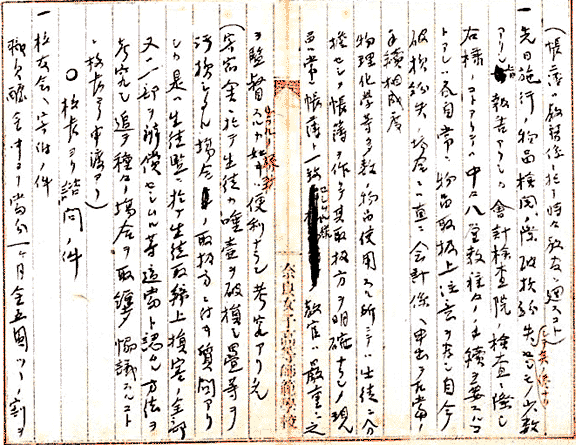 (帳簿ハ教務係ニ於テ時々教官ニ廻スコト)
一先日施行ノ物品検閲ノ際破損紛失セルモノ少数
アリシ旨報告アリシカ会計検査院ノ検査ニ際シ
右様ノコトアリテハ中々八釜敷種々ノ手続ヲ要スル
トアレハ各自常ニ物品取扱上注意ヲナシ自今
破損紛失ノ場合ニハ直ニ会計係ヘ申出テ相当ノ
手続相成度
物理化学等多数ノ物品使用スル所ニテハ生徒ニ分
担セシメ帳簿ヲ作リ其取扱方ヲ明確ナラシメ現
品ト常ニ帳簿ト一致セシムル様教官ハ厳重ニ之
ヲ監督スルカ如キハ便利ナラン考究アリ度
(寄宿舎ニ於テ生徒カ唾壺ヲ破損シ畳等ヲ
汚損シタル場合ノ取扱方ニ付キ質問アリ
シカ是ハ生徒監ニ於テ生徒取締上損害ノ全部
又ハ一部ヲ弁償セシムル等適当ト認ムル方法ヲ
考究シ追テ種々ノ場合ヲ取纏メ協議スルコト
ニ校長ヨリ申渡アリ)
○校長ヨリ諮問ノ件
一校友会ヘ寄付ノ件
職員醵金中ヨリ当分一ヶ月金五円ツヽノ割ヲ
奈良女子高等師範学校